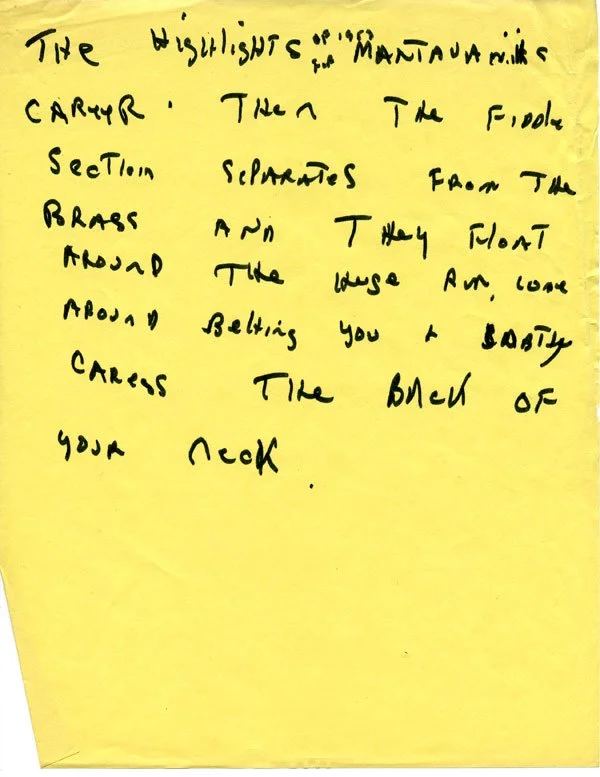 THE HIGHLIGHTS OF 1957 FOR MANTAVANIIS
CAREER. THEN THE FIDDLE
SECTION SEPARATES FROM THE
BRASS AND THEY FLOAT
AROUND THE HUGE RIM, COME
AROUND BEHIND YOU +
CARESS THE BACK OF
YOUR NECK.